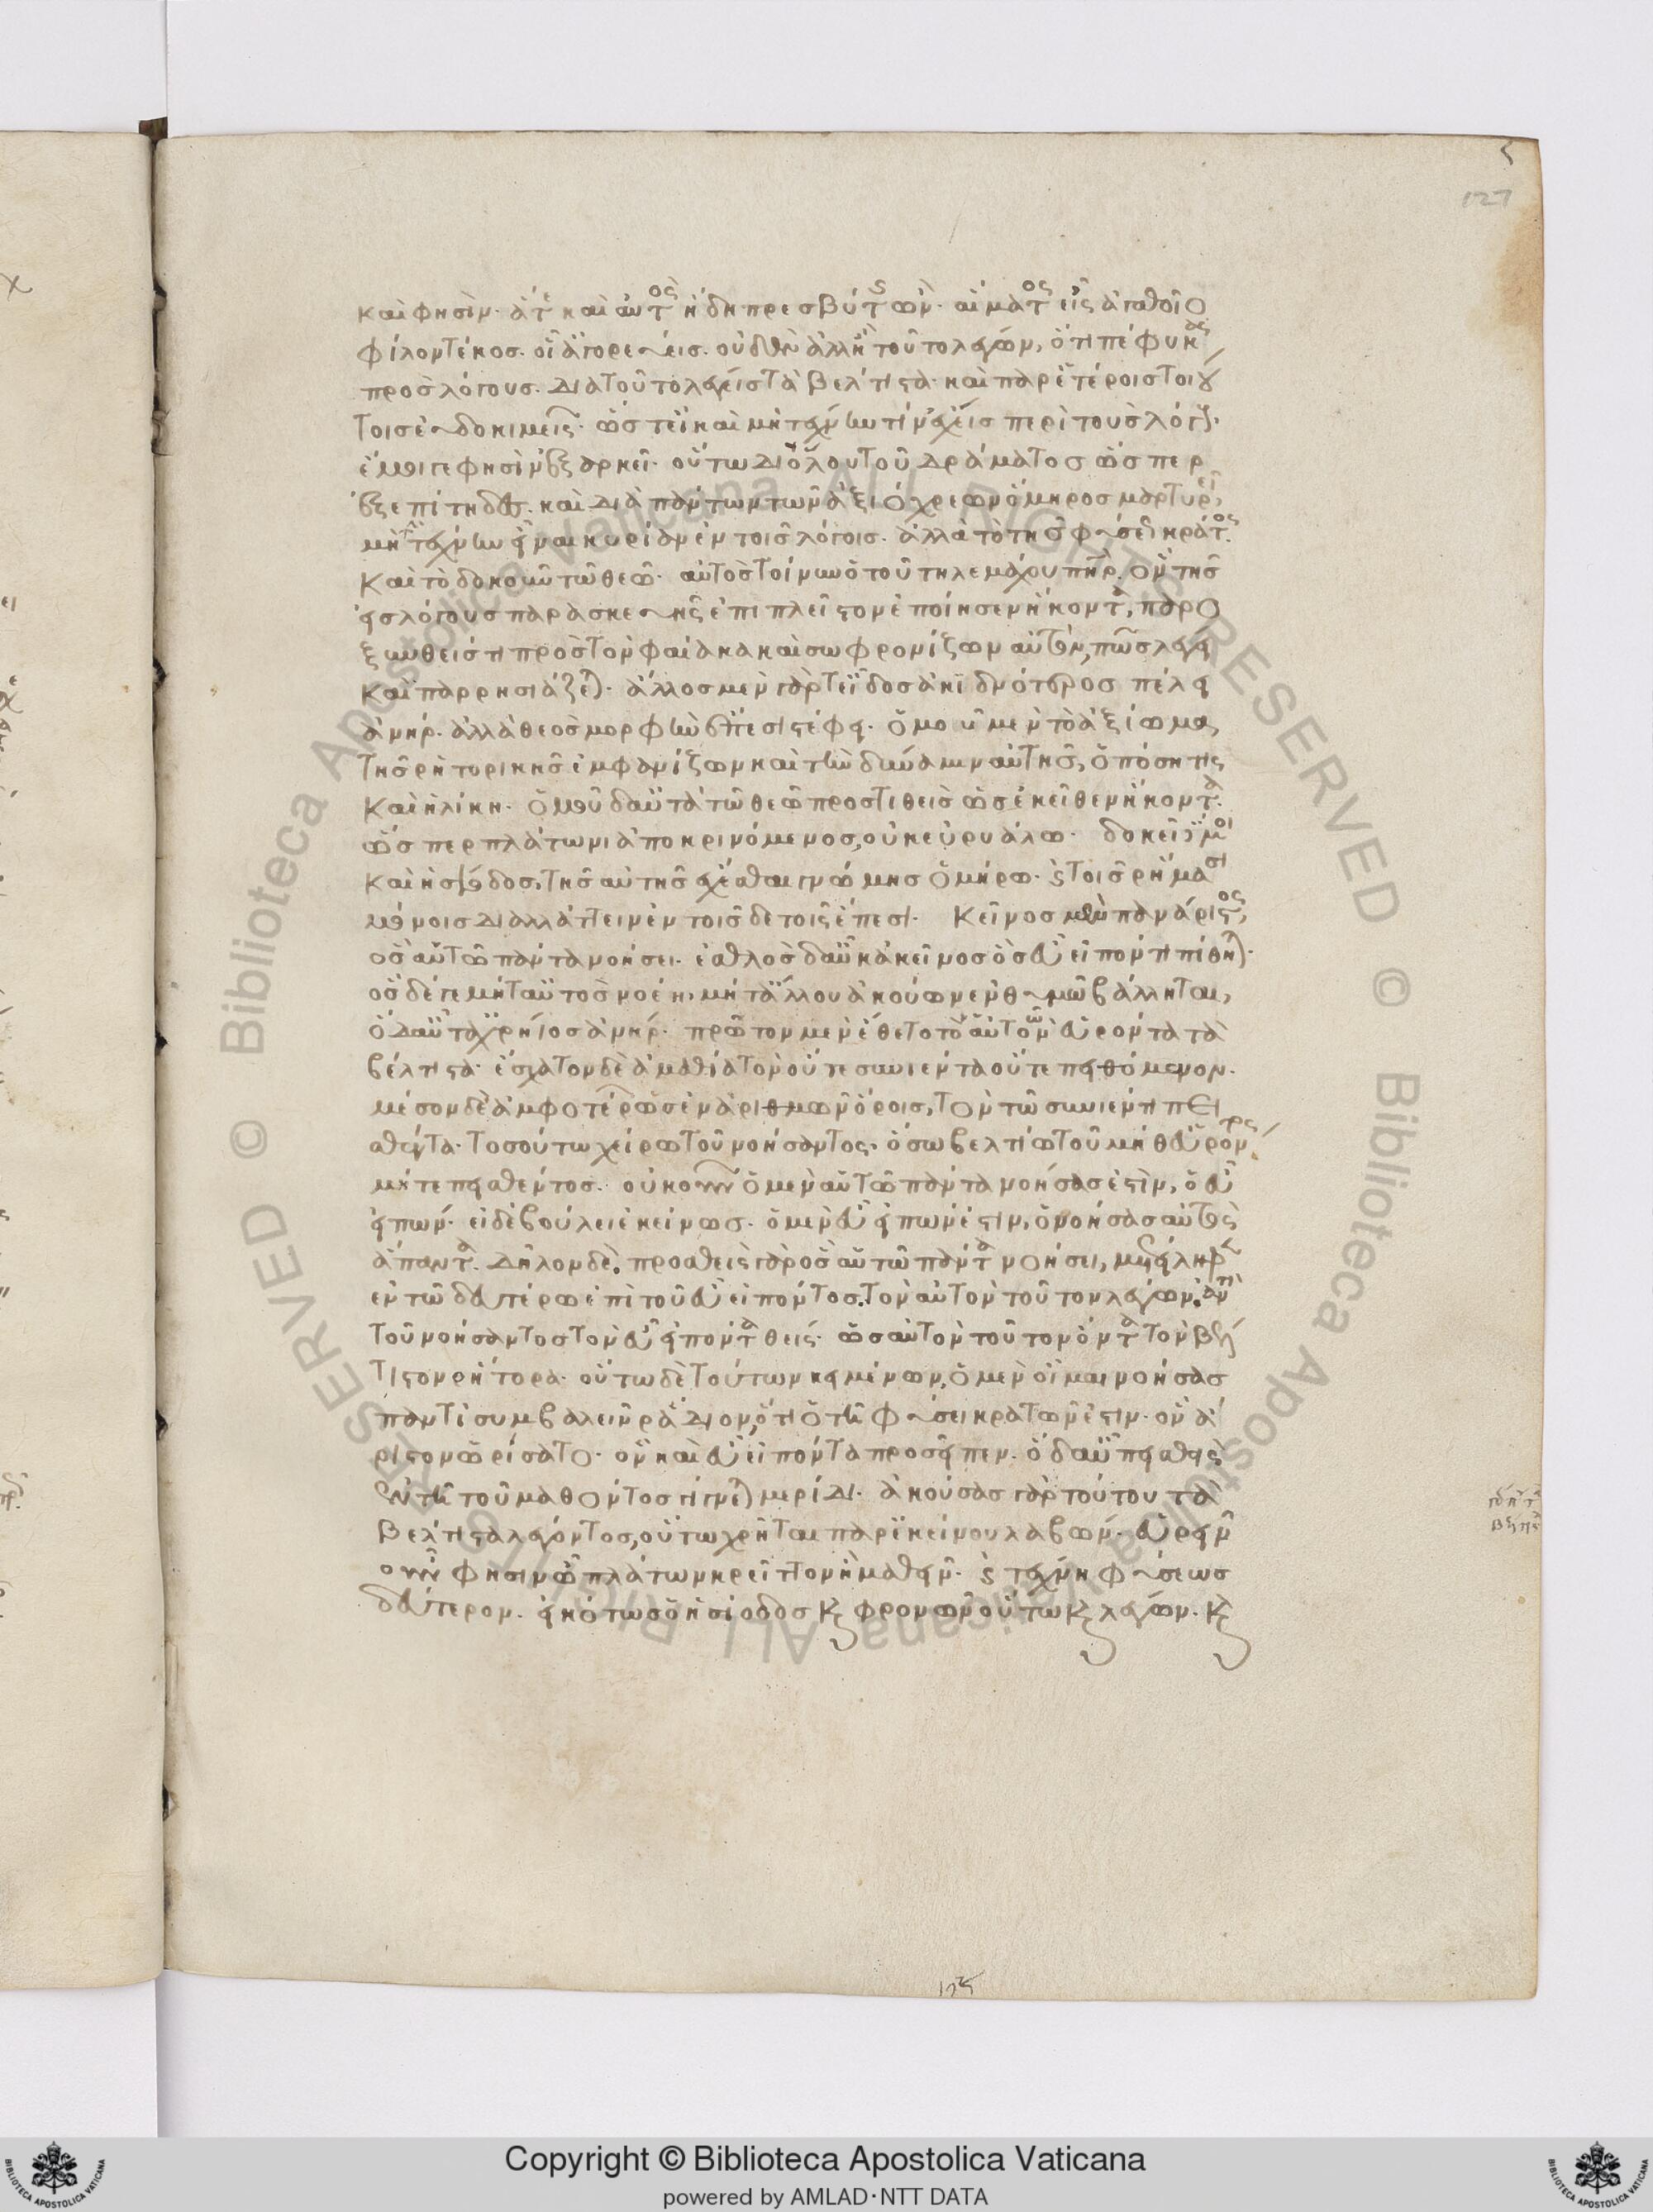 καὶ φησὶν· ἅτε καὶ αὐτὸς ἤδη πρεσβύτερος ὤν· αἵματος εἶς ἀγαθοῖο
φίλον τέκος. οἷ' ἀγορεύεις. οὐδὲν ἀλλ' ἢ τοῦτο λέγων, ὅτι πέφυκας
πρὸς λόγους. διατοῦτο λέγεις τὰ βέλτιστα· καὶ παρ' ἑτέροις τοιού
τοις εὐδοκιμεῖς· ὥστ' εἰ καὶ μὴ τέχνην τίν' ἔχεις περὶ τοὺς λόγους·
ἔμοιγε φησὶν ἐξαρκεῖ· οὕτω δι' ὅλου τοῦ δράματος ὥσπερ
ἐξεπίτηδες. καὶ διὰ πάντων τῶν ἀξιόχρεων ὅμηρος μαρτυρεῖ,
μὴ τὴν τέχνην εἶναι κυρίαν ἐν τοῖς λόγοις. ἀλλὰ τὸ τῆς φύσεως κράτος.
καὶ τὸ δοκοῦν τῷ θεῷ. αὐτὸς τοίνυν ὁ τοῦ τηλεμάχου πατήρ. ὃν τῆς
εἰς λόγους παρασκευῆς ἐπιπλεῖστον ἐποίησεν ἥκοντα, παρο
ξυνθείς τι πρὸς τὸν φαίακα καὶ σωφρονίζων αὐτόν, πῶς λέγει
καὶ παρρησιάζεται· ἄλλος μὲν γάρ τ' εἶδος ἀκιδνότερος πέλει
ἀνήρ. ἀλλὰ θεὸς μορφὴν ἔπεσι στέφει. ὁμοῦ μὲν τὸ ἀξίωμα
τῆς ῥητορικῆς ἐμφανίζων καὶ τὴν δύναμιν αὐτῆς, ὁπόση τις
καὶ ἡλίκη. ὁμοῦ δ' αὖ τὰ τῷ θεῷ προστιθεὶς ὡς ἐκεῖθεν ἥκοντα.
ὥσπερ πλάτωνι ἀποκρινόμενος, οὐκ εὐρυάλῳ. δοκεῖ μοι
καὶ ἡσίοδος, τῆς αὐτῆς ἔχεσθαι γνώμης ὁμήρῳ. καὶ τοῖς ῥήμασι
μόνοις διαλλάττειν ἐν τοῖσδε τοῖς ἔπεσι. κεῖνος μὲν πανάριστος,
ὃς αὑτῷ πάντα νοήσει. ἐσθλὸς δ' αὖ κἀκεῖνος ὃς εὖ εἰπόντι πίθηται·
ὃς δέ γε μήτ' αὐτὸς νοέῃ, μήτ' ἄλλου ἀκούων ἐν θυμῷ βάλληται,
ὁ δ' αὖτ' ἀχρήϊος ἀνήρ. πρῶτον μὲν ἔθετο τὸν αὑτῷ εὑρόντα τὰ
βέλτιστα. ἔσχατον δὲ ἀμαθίᾳ τὸν οὔτε συνιέντα οὔτε πειθόμενον.
μέσον δὲ ἀμφοτέρων ὡς ἐν ἀριθμῶν ὅροις, τὸν τῷ συνιέντι πει
σθέντα. τοσούτῳ χείρω τοῦ νοήσαντος. ὅσῳ βελτίω τοῦ μήθ' εὑρόντος
μήτε πεισθέντος. οὐκοῦν ὁ μὲν αὑτῷ πάντα νοήσας ἐστὶν, ὁ εὖ
εἰπών. εἰ δὲ βούλει ἐκείνως. ὁ μὲν εὖ εἰπών ἐστιν, ὁ νοήσας αὐτὸς
ἅπαντα. δῆλον δέ. προσθεὶς γὰρ ὃς αὑτῷ πάντα νοήσει,
ἐν τῷ δευτέρῳ ἐπὶ τοῦ εὖ εἰπόντος. τὸν αὐτὸν τοῦτον λέγων. ἀντὶ
τοῦ νοήσαντος τὸν εὖ εἰπόντα θείς. ὡς αὐτὸν τοῦτον ὄντα τὸν βέλ
τιστον ῥήτορα. οὕτω δὲ τούτων κειμένων, ὁ μὲν οἶμαι νοήσας
παντὶ συμβαλεῖν ῥάδιον, ὅτι ὁ τῇ φύσει κρατῶν ἐστιν. ὃν ἄ
ριστον ὡρίσατο. ὃν καὶ εὖ εἰπόντα προσεῖπεν. ὁ δ' αὖ πεισθεὶς
ἐν τῇ τοῦ μαθόντος γίγνεται μερίδι. ἀκούσας γὰρ τούτου τὰ
βέλτιστα λέγοντος, οὕτω χρῆται παρ' ἐκείνου λαβών. εὑρεῖν
οὖν φησιν ὦ πλάτων κρεῖττον ἢ μαθεῖν. καὶ τέχνη φύσεως
δεύτερον. εἰκότως ὁ ἡσίοδος καὶ φρονῶν οὕτω καὶ λέγων. καὶ